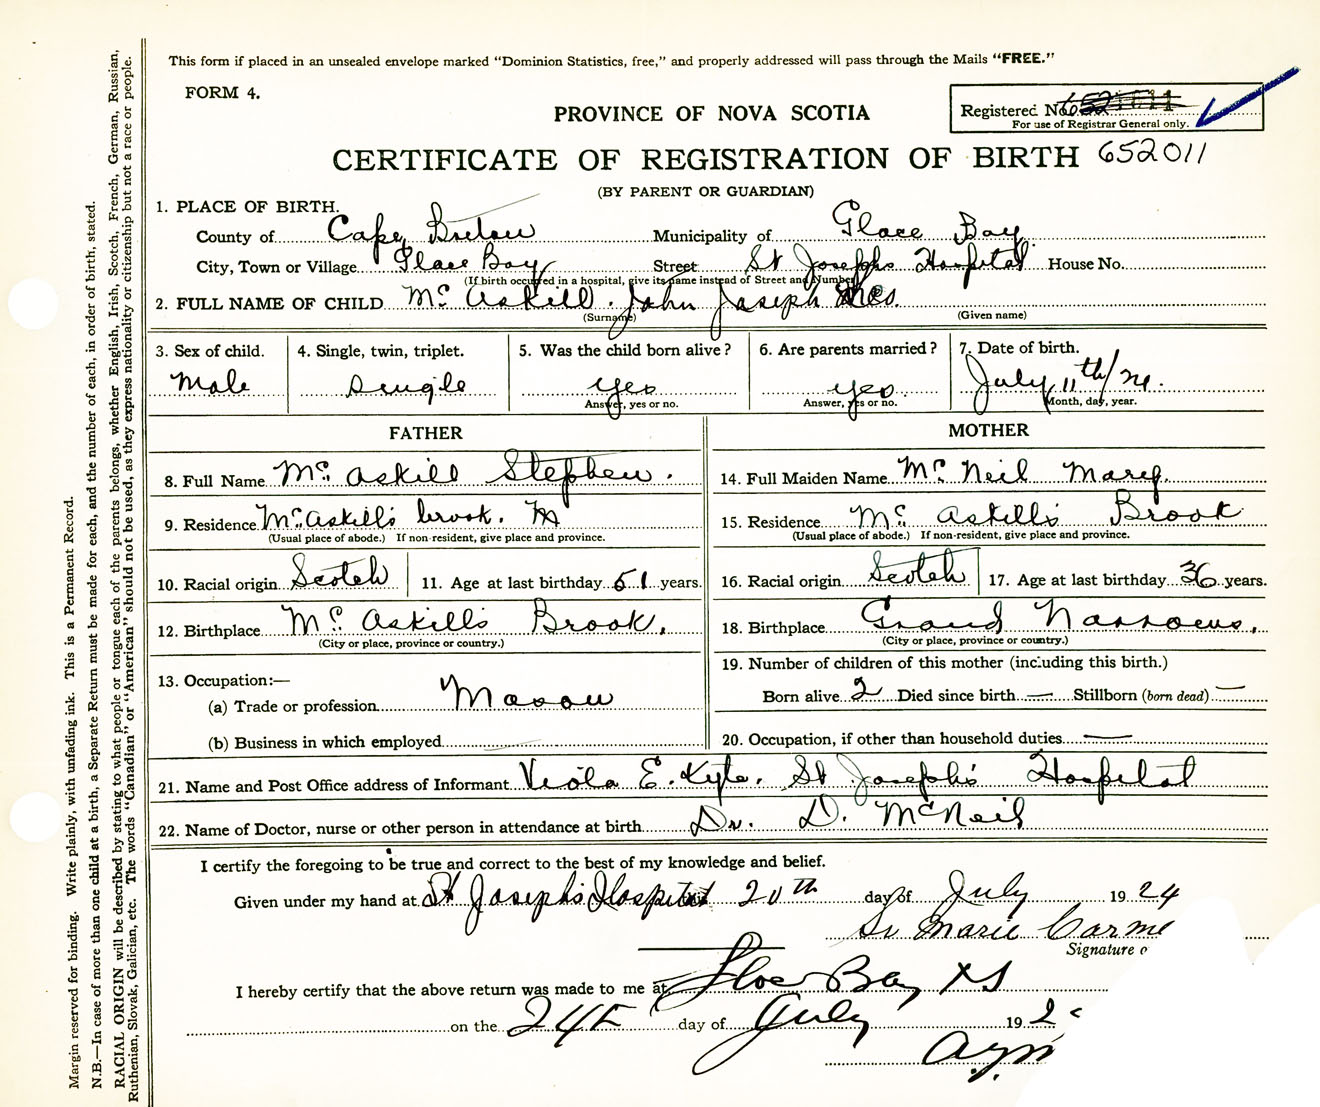 This form if placed in an unsealed envelope marked "Dominion Statistics, free," and properly addressed will pass through the Mails "FREE."
FORM 4.
PROVINCE OF NOVA SCOTIA
Registered No.
For use of Registrar General only.
CERTIFICATE OF REGISTRATION OF BIRTH 652011
(BY PARENT OR GUARDIAN)
1. PLACE OF BIRTH.
County of Cape Breton Municipality of Glace Bay
City, Town or Village Glace Bay Street St Josephs Hospital House No.
(If birth occurred in a hospital, give its name instead of Street and Number)
2. FULL NAME OF CHILD Mc Askill. John Joseph
(Surname) (Given name)
3. Sex of child. 4. Single, twin, triplet. 5. Was the child born alive? 6. Are parents married? 7. Date of birth.
Male Single yes yes July 11th/24.
Answer, yes or no. Answer, yes or no. Month, day, year.
FATHER
8. Full Name Mc Askill Stephen.
9. Residence McAskill's brook.
(Usual place of abode.) If non-resident, give place and province.
10. Racial origin Scotch 11. Age at last birthday 51 years.
12. Birthplace Mc Askill's Brook.
(City or place, province or country.)
13. Occupation:—
(a) Trade or profession Mason
(b) Business in which employed
MOTHER
14. Full Maiden Name Mc Neil Mary.
15. Residence Mc Askill's Brook
(Usual place of abode.) If non-resident, give place and province.
16. Racial origin Scotch 17. Age at last birthday 36 years.
18. Birthplace Grand Narrows.
(City or place, province or country.)
19. Number of children of this mother (including this birth.)
Born alive 2 Died since birth — Stillborn (born dead) —
20. Occupation, if other than household duties —
21. Name and Post Office address of Informant Viola E. Kyte. St Joseph's Hospital
22. Name of Doctor, nurse or other person in attendance at birth Dr. D. McNeil
I certify the foregoing to be true and correct to the best of my knowledge and belief.
Given under my hand at St Joseph's Hospital 20th day of July 1924
Sr Marie Carme
Signature o
I hereby certify that the above return was made to me at Glace Bay NS
on the 24th day of July 192
Margin reserved for binding. Write plainly, with unfading ink. This is a Permanent Record.
N.B.—In case of more than one child at a birth, a Separate Return must be made for each, and the number of each, in order of birth, stated.
RACIAL ORIGIN will be described by stating to what people or tongue each of the parents belongs, whether English, Irish, Scotch, French, German, Russian,
Ruthenian, Slovak, Galician, etc. The words "Canadian" or "American" should not be used, as they express nationality or citizenship but not a race or people.